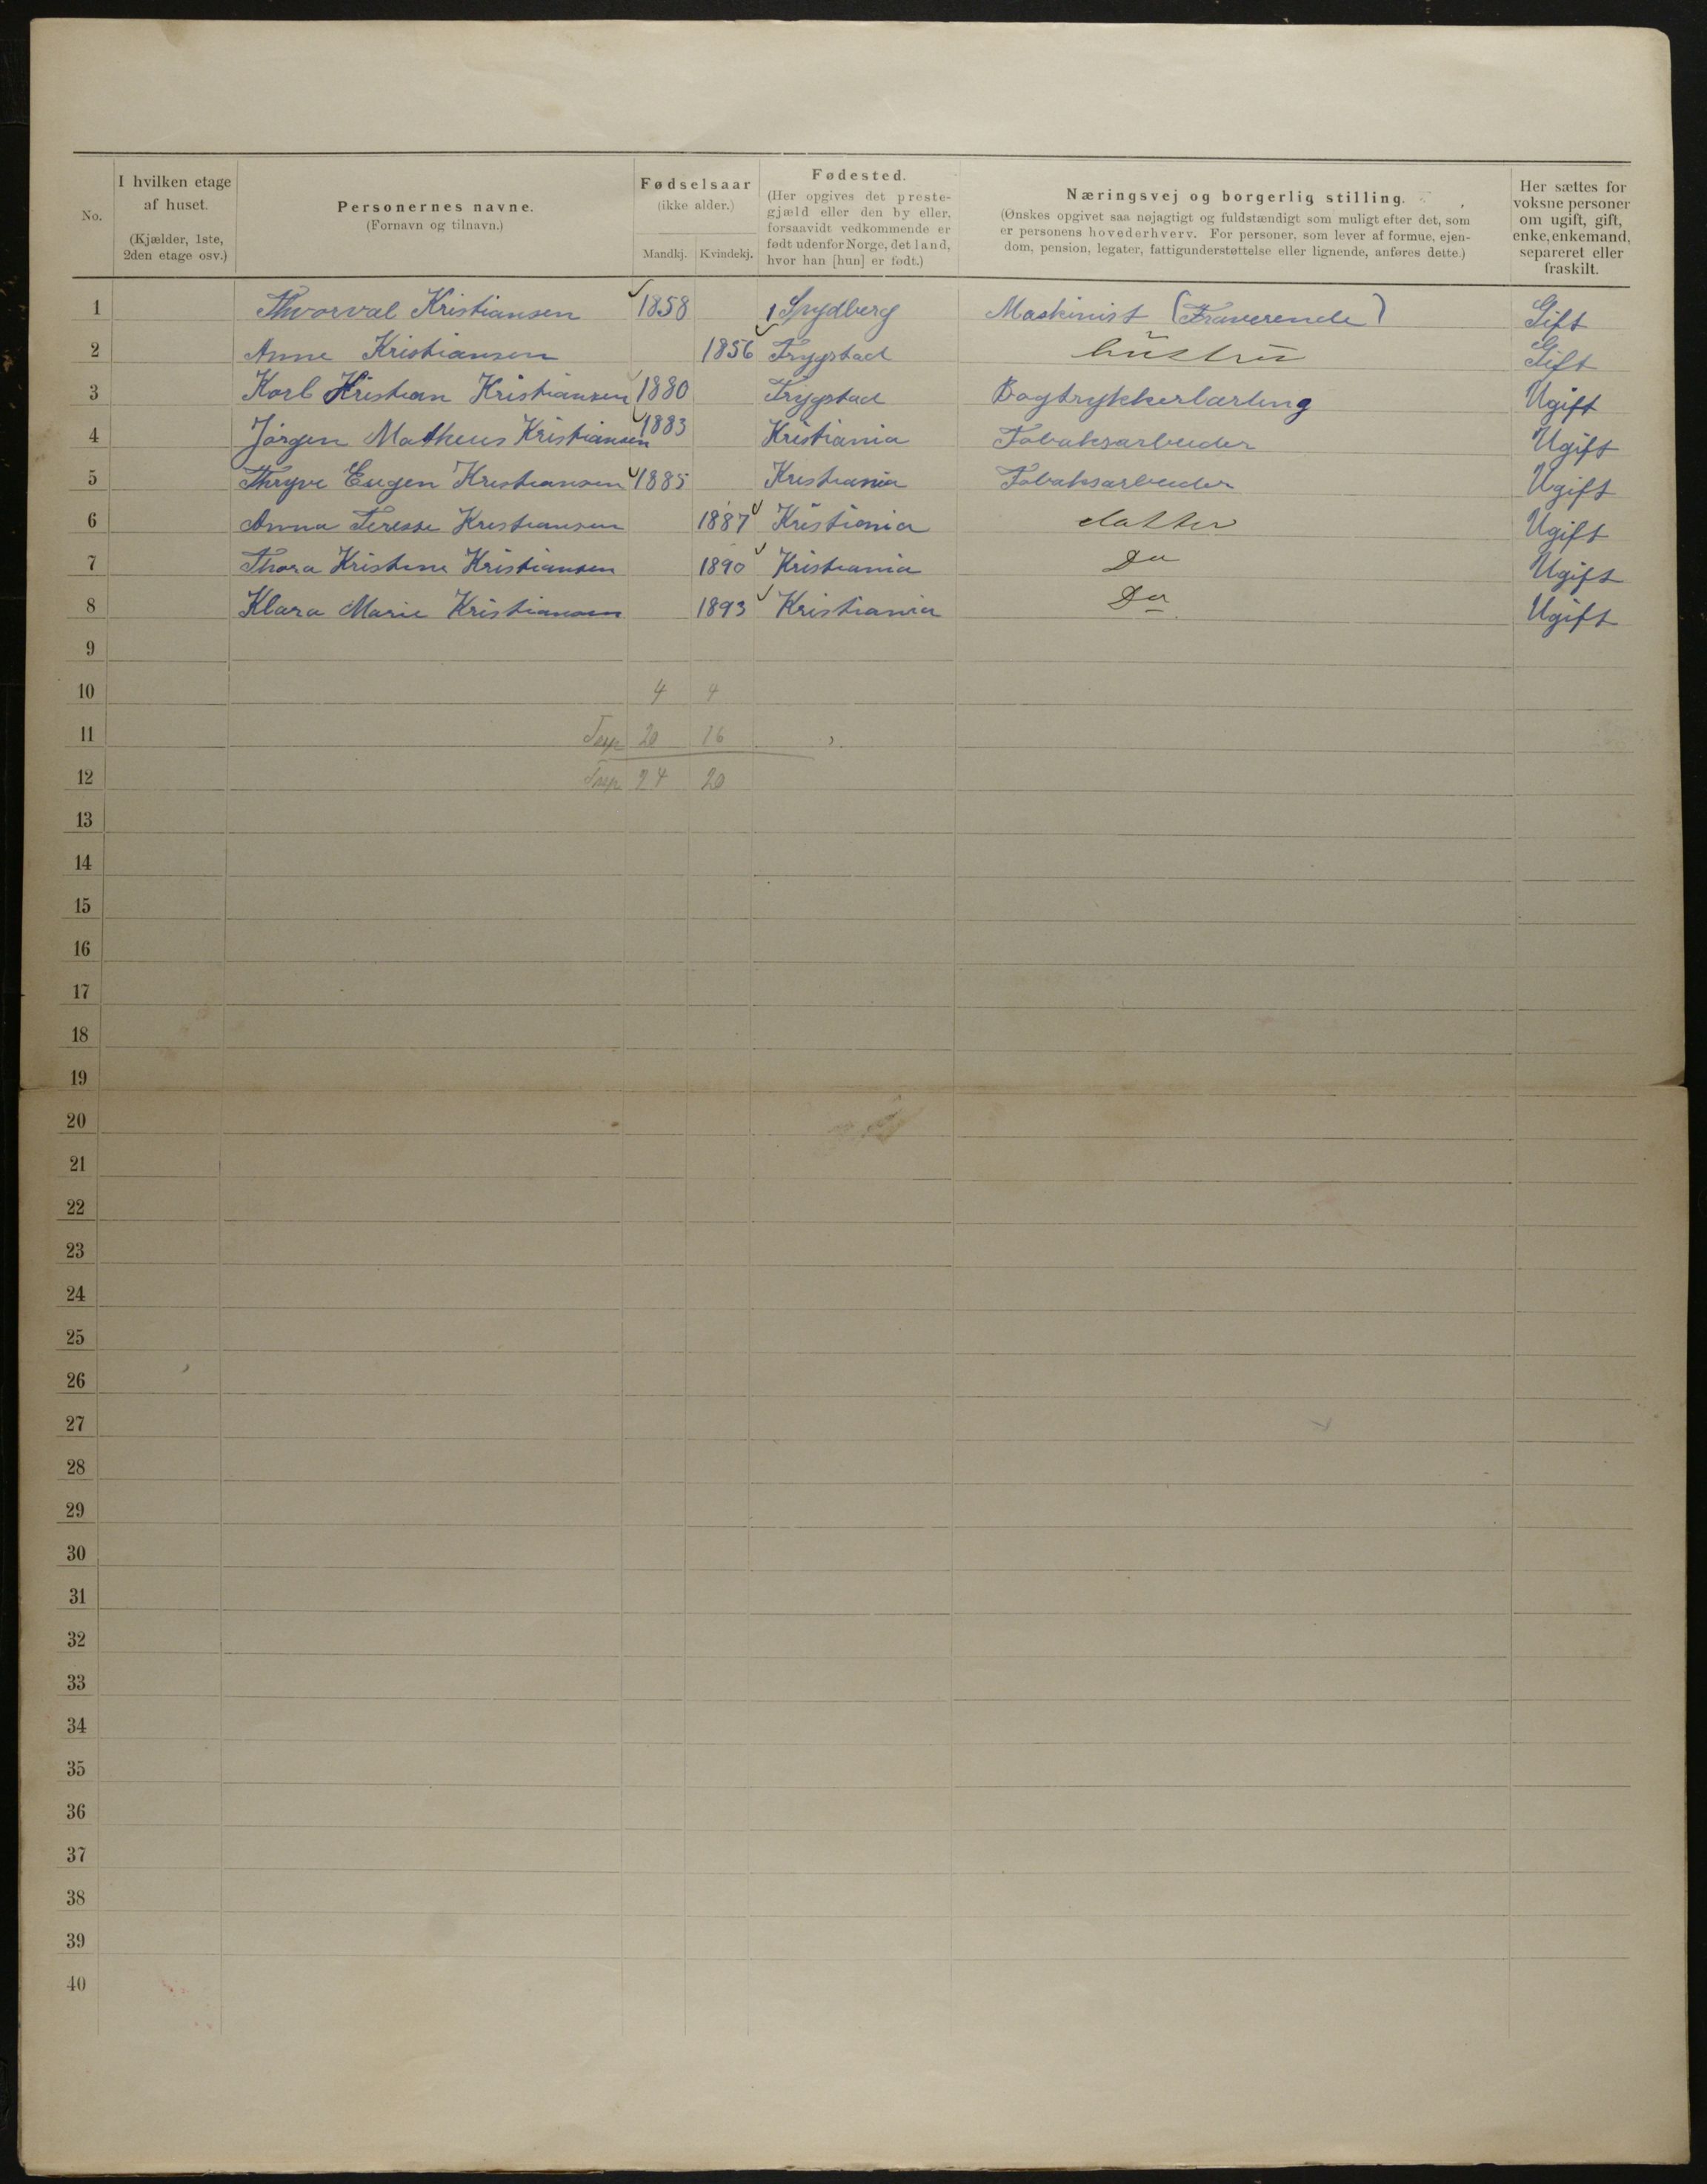 No.
I hvilken etage
af huset.
(Kjælder, 1ste,
2den etage osv.)
Personernes navne.
(Fornavn og tilnavn.)
Fødselsaar
(ikke alder.)
Mandkj. Kvindekj.
Fødested.
(Her opgives det preste-
gjæld eller den by eller,
forsaavidt vedkommende er
født udenfor Norge, det land,
hvor han [hun] er født.)
Næringsvej og borgerlig stilling.
(Ønskes opgivet saa nøjagtigt og fuldstændigt som muligt efter det, som
er personens hovederhverv. For personer, som lever af formue, ejen-
dom, pension, legater, fattigunderstøttelse eller lignende, anføres dette.)
Her sættes for
voksne personer
om ugift, gift,
enke, enkemand,
separeret eller
fraskilt.
1 Thvorval Kristiansen 1858 Spydberg Maskinist (Fraverende) Gift
2 Anne Kristiansen 1856 Trygstad hustru Gift
3 Karl Kristian Kristiansen 1880 Trygstad Bogtrykkerlærling Ugift
4 Jørgen Matheus Kristiansen 1883 Kristiania Tobaksarbeider Ugift
5 Thryve Eugen Kristiansen 1885 Kristiania Tobaksarbeider Ugift
6 Anna Teresse Kristiansen 1887 Kristiania datter Ugift
7 Thora Kristine Kristiansen 1890 Kristiania Do Ugift
8 Klara Marie Kristiansen 1893 Kristiania Do Ugift
9
10 4 4
11 20 16
12 24 20
13
14
15
16
17
18
19
20
21
22
23
24
25
26
27
28
29
30
31
32
33
34
35
36
37
38
39
40